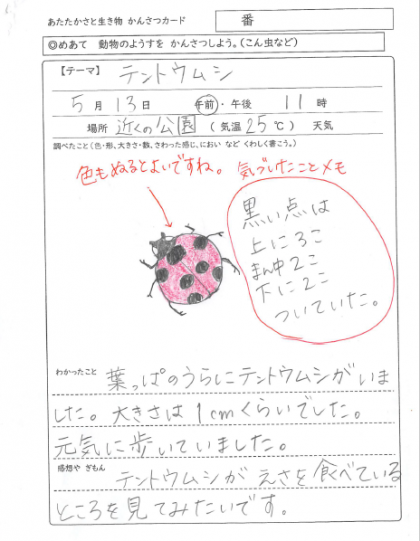 あたたかさと生き物 かんさつカード
番
◎めあて 動物のようすを かんさつしよう。(こん虫など)
【テーマ】 テントウムシ
5月13日 午前・午後 11時
場所 近くの公園 (気温25℃) 天気
調べたこと(色・形、大きさ・数、さわった感じ、におい など くわしく書こう。)
色もぬるとよいですね。 気づいたことメモ
黒い点は
上に3こ
まん中2こ
下に2こ
ついていた。
わかったこと 葉っぱのうらにテントウムシがいま
した。大きさは1cmくらいでした。
元気に歩いていました。
感想や ぎもん テントウムシがえさを食べている
ところを見てみたいです。